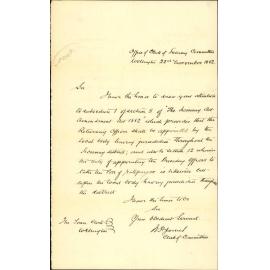 Office of Clerk of Licensing Committee
Wellington 22nd November 1882
Sir
I have the honor to draw your attention
to subsection 1 of section 5 of "The Licensing Act
Amendment Act 1882" which provides that the
Returning Officer shall be appointed by the
local body having jurisdiction throughout the
Licensing district, and also to section 12 wherein
the duty of appointing the Presiding Officer to
take the Poll of Ratepayers is likewise
upon the local body having jurisdiction
the district.
I have the honor to be
Sir
Your Obedient Servant
Clerk of Committee
The Town Clerk
Wellington